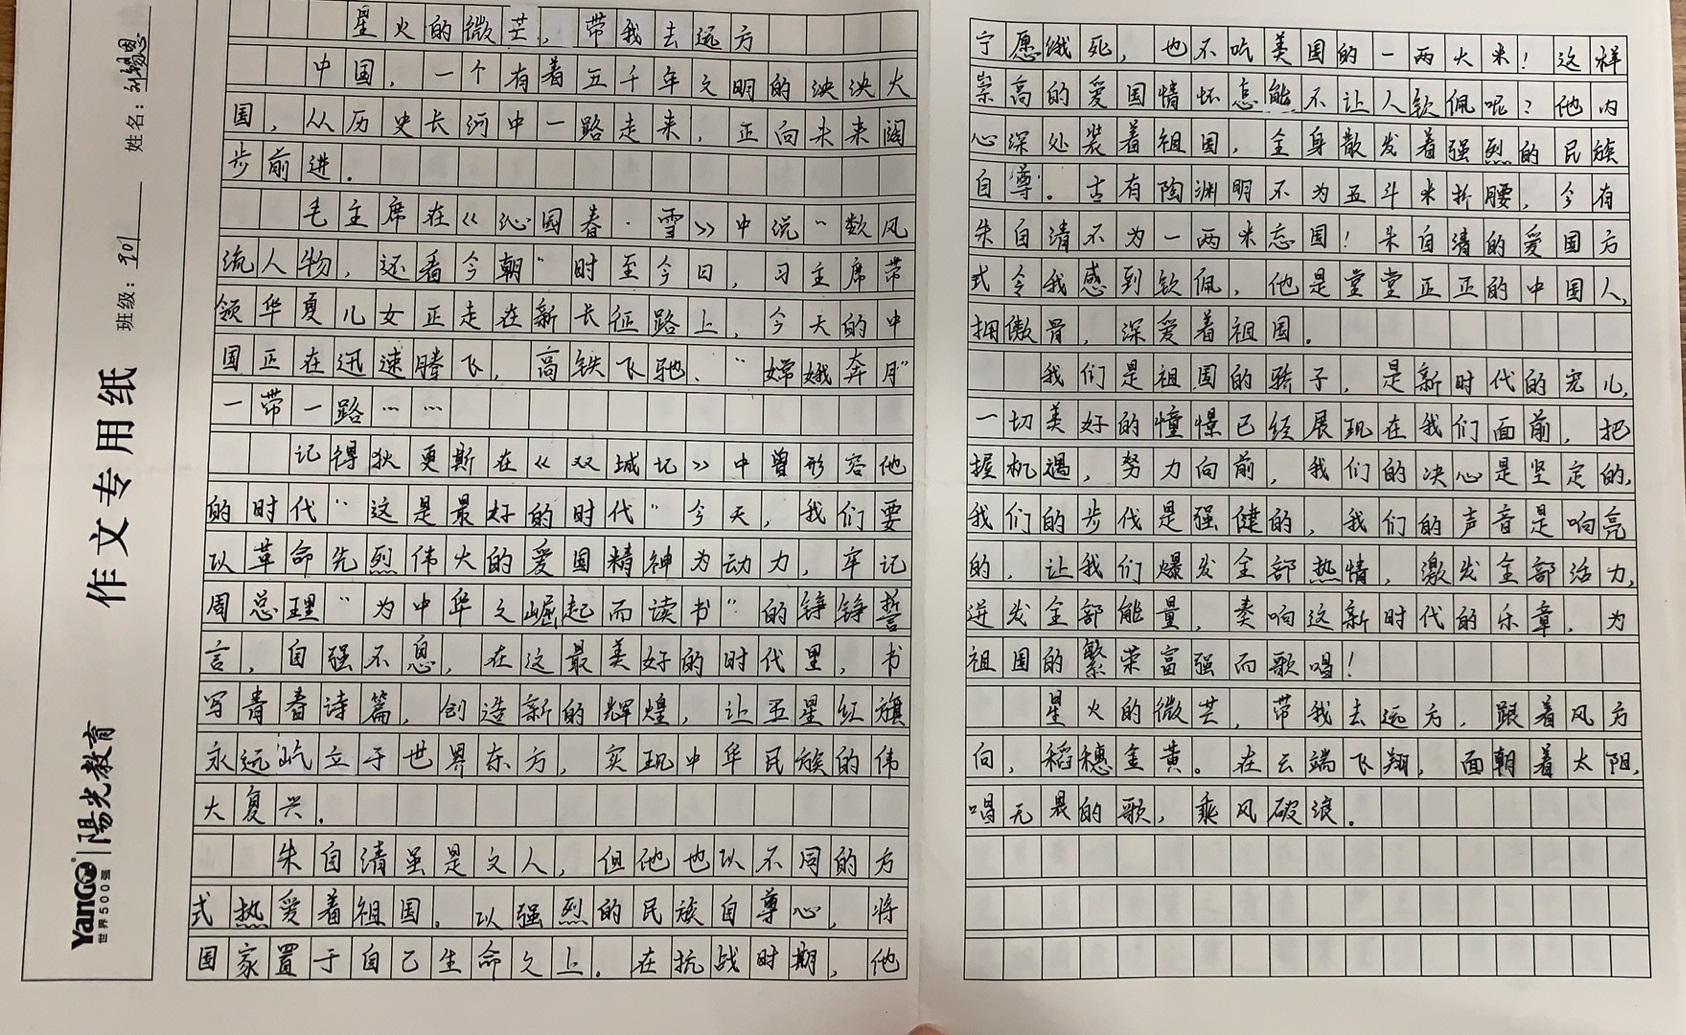 作文专用纸
YanGO 陽光教育
世界500强
班级：901
姓名：
星火的微芒，带我去远方
中国，一个有着五千年文明的泱泱大
国，从历史长河中一路走来，正向未来阔
步前进。
毛主席在《沁园春·雪》中说“数风
流人物，还看今朝”时至今日，习主席带
领华夏儿女正走在新长征路上，今天的中
国正在迅速腾飞，高铁飞驰、“嫦娥奔月”
一带一路……
记得狄更斯在《双城记》中曾形容他
的时代“这是最好的时代”今天，我们要
以革命先烈伟大的爱国精神为动力，牢记
周总理“为中华之崛起而读书”的铮铮誓
言，自强不息，在这最美好的时代里，书
写青春诗篇，创造新的辉煌，让五星红旗
永远屹立于世界东方，实现中华民族的伟
大复兴。
朱自清虽是文人，但他也以不同的方
式热爱着祖国。以强烈的民族自尊心，将
国家置于自己生命之上。在抗战时期，他
宁愿饿死，也不吃美国的一两大米！这样
崇高的爱国情怀怎能不让人钦佩呢？他内
心深处装着祖国，全身散发着强烈的民族
自尊。古有陶渊明不为五斗米折腰，今有
朱自清不为一两米忘国！朱自清的爱国方
式令我感到钦佩，他是堂堂正正的中国人，
拥傲骨，深爱着祖国。
我们是祖国的骄子，是新时代的宠儿，
一切美好的憧憬已经展现在我们面前，把
握机遇，努力向前，我们的决心是坚定的，
我们的步伐是强健的，我们的声音是响亮
的，让我们爆发全部热情，激发全部活力，
迸发全部能量，奏响这新时代的乐章，为
祖国的繁荣富强而歌唱！
星火的微芒，带我去远方，跟着风方
向，稻穗金黄。在云端飞翔，面朝着太阳，
唱无畏的歌，乘风破浪。